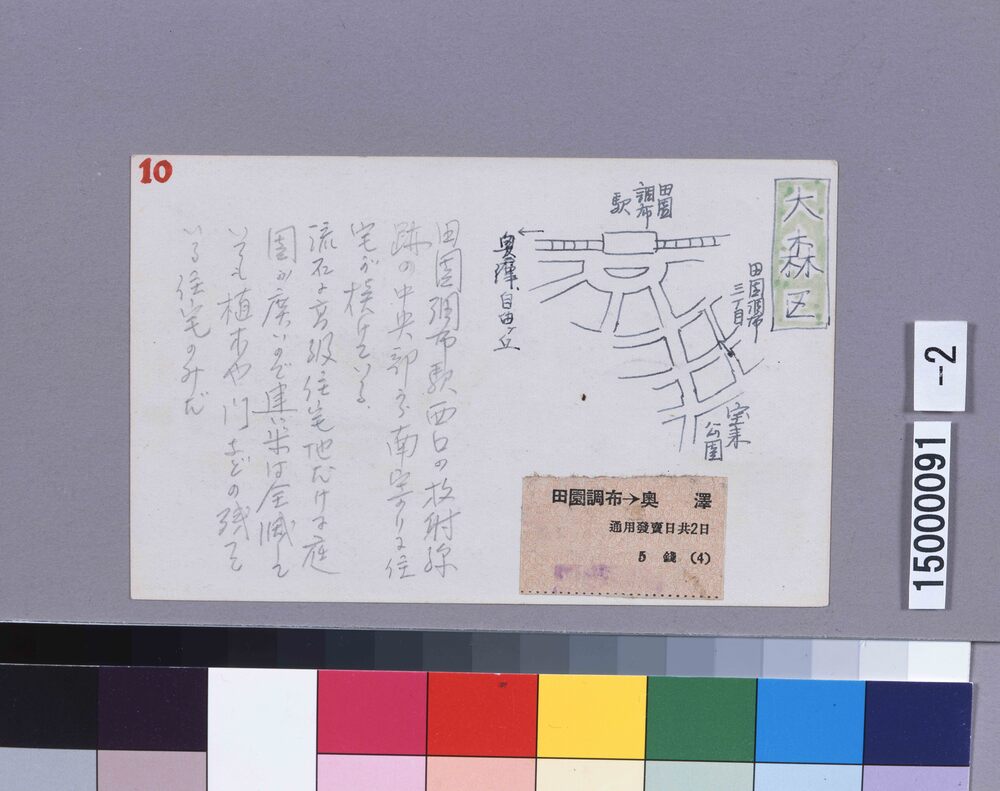 10
大森区
田園
調布
駅
田園調布
三丁目
宝来
公園
奥澤、自由ヶ丘
田園調布駅西口の放射線
跡の中央部から南寄りに住
宅が残けている。
流石に高級住宅地だけに庭
園が廣いので建物は全滅して
いても植木や門などの残って
いる住宅のみだ
田園調布→奥澤
通用發賣日共2日
5 錢 (4)
-2
15000091